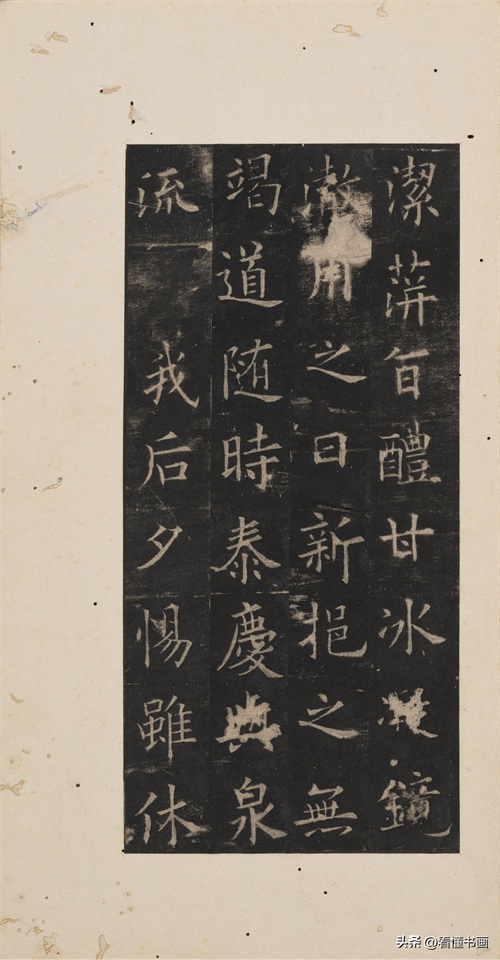 潔荓旨醴甘冰凝鏡
澈用之日新挹之無
竭道随時泰慶與泉
流 我后夕惕雖休
头条 @看懂书画